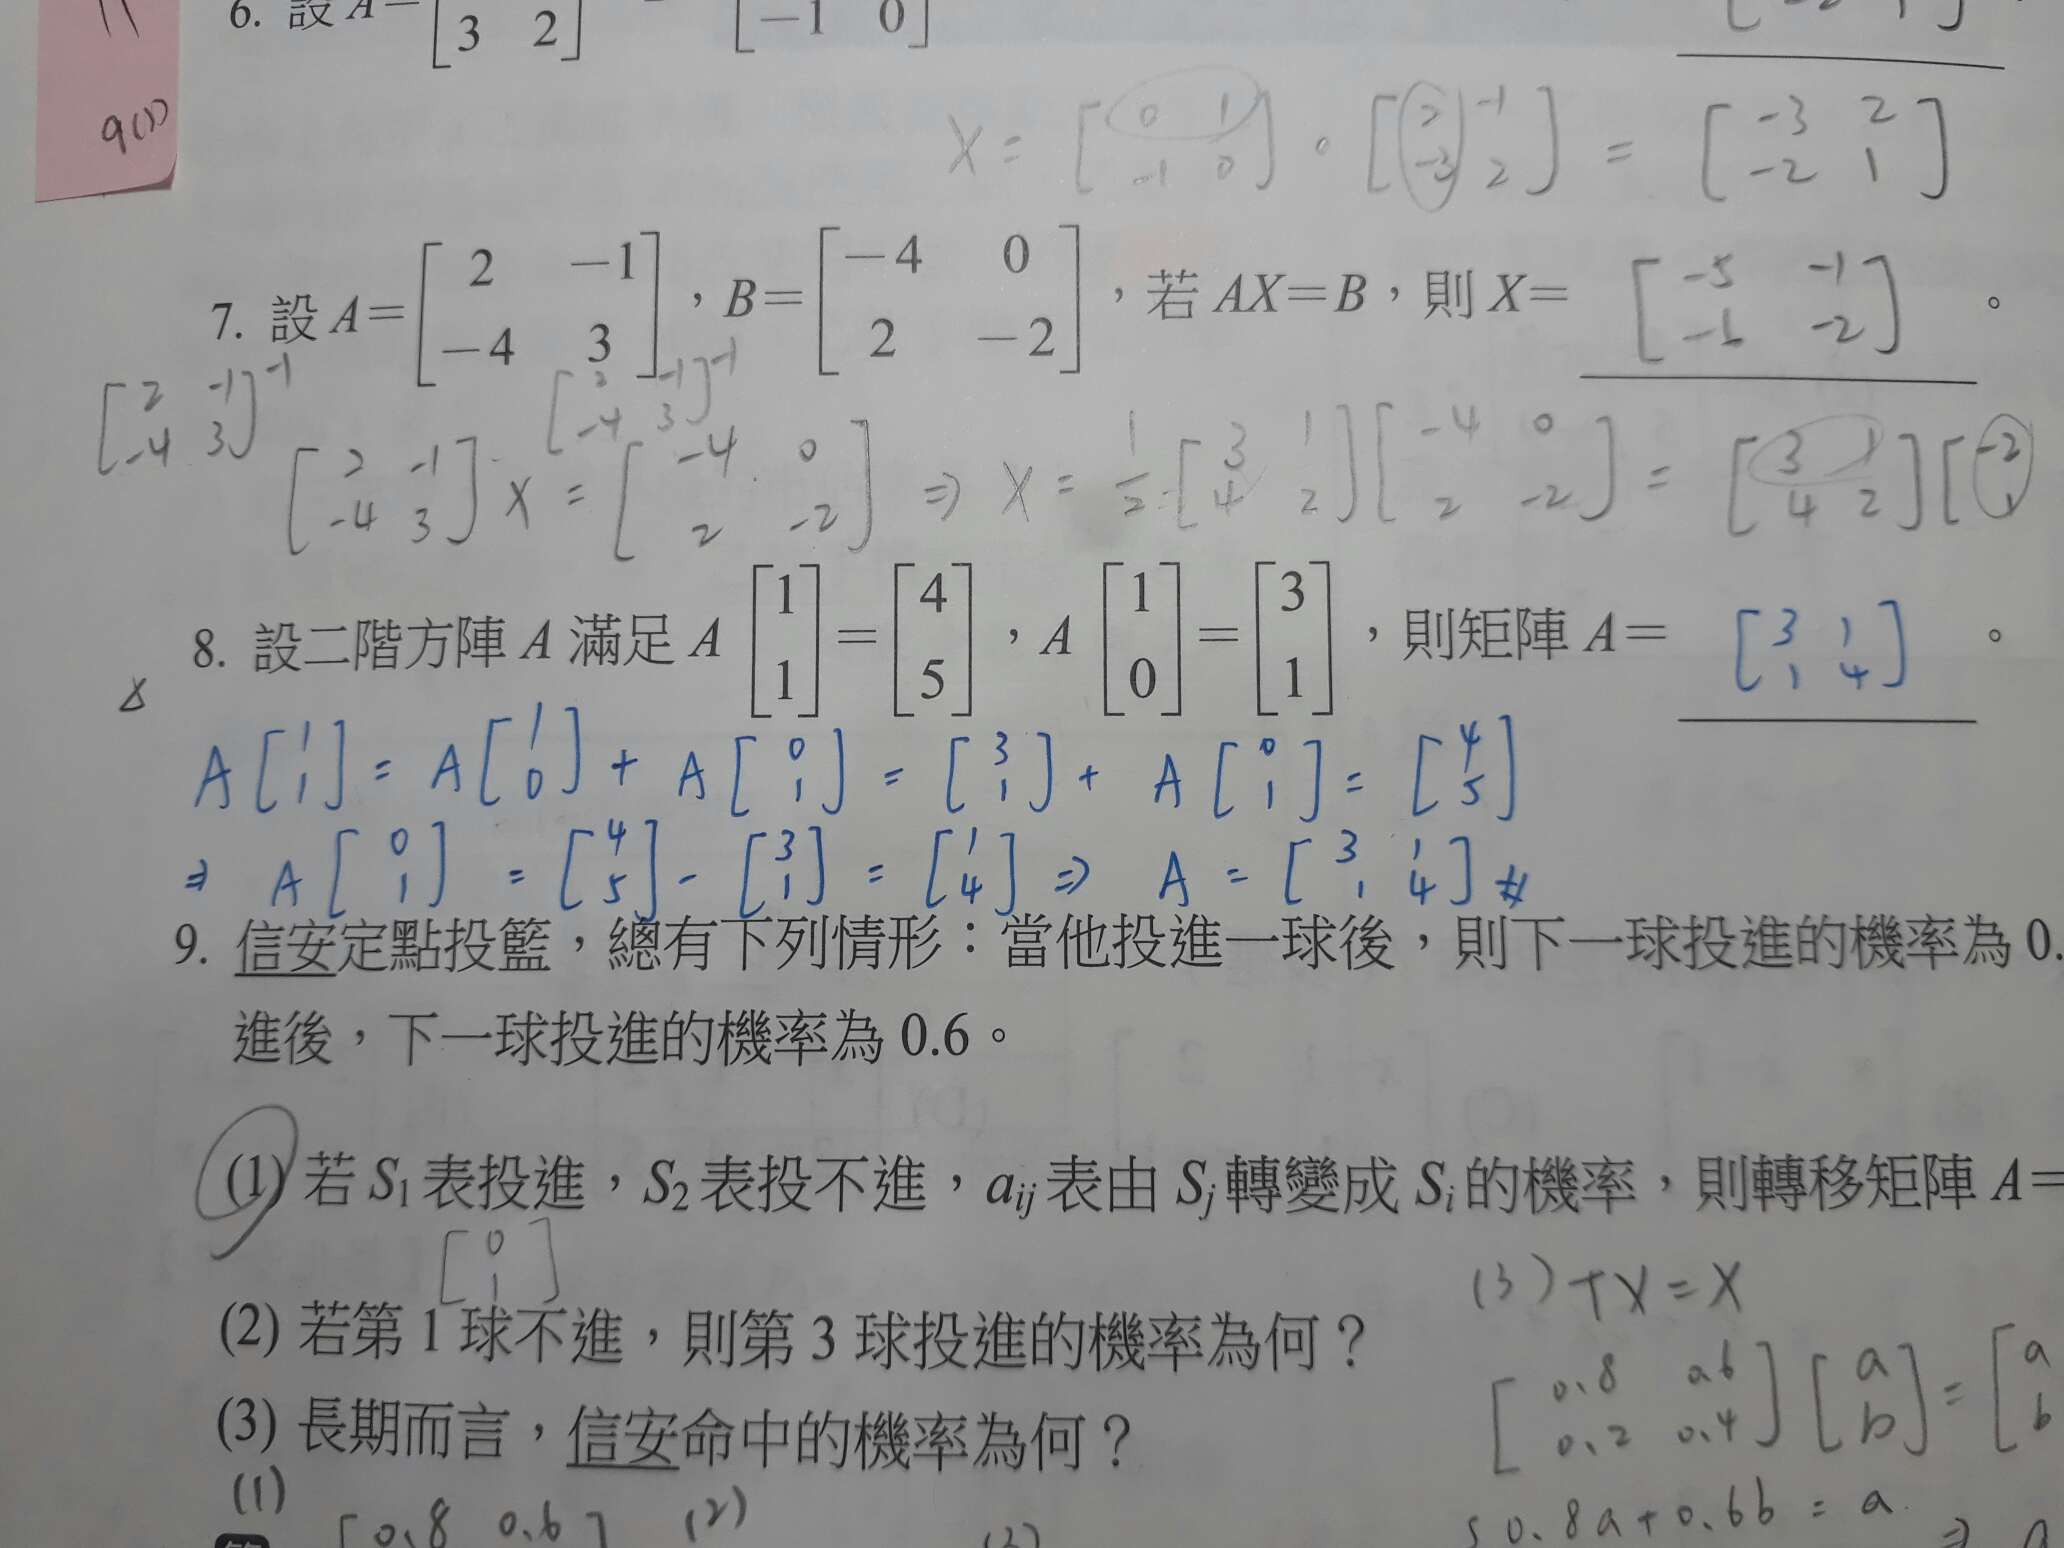 6. 設 A=[ 3 2 ] [ −1 0 ]
9(1)
X = [ 0 1 ; -1 0 ] · [ 2 -1 ; -3 2 ] = [ -3 2 ; -2 1 ]
7. 設 A=[ 2 −1 ; −4 3 ],B=[ −4 0 ; 2 −2 ],若 AX=B,則 X= [ -5 -1 ; -6 -2 ] 。
[ 2 -1 ; -4 3 ]⁻¹ [ 2 -1 ; -4 3 ]⁻¹
[ 2 -1 ; -4 3 ] X = [ -4 0 ; 2 -2 ] ⇒ X = 1/2 [ 3 1 ; 4 2 ] [ -4 0 ; 2 -2 ] = [ 3 1 ; 4 2 ] [ -2 ; 1
8. 設二階方陣 A 滿足 A [ 1 ; 1 ] = [ 4 ; 5 ],A [ 1 ; 0 ] = [ 3 ; 1 ],則矩陣 A= [ 3 1 ; 1 4 ] 。
A [ 1 ; 1 ] = A [ 1 ; 0 ] + A [ 0 ; 1 ] = [ 3 ; 1 ] + A [ 0 ; 1 ] = [ 4 ; 5 ]
⇒ A [ 0 ; 1 ] = [ 4 ; 5 ] - [ 3 ; 1 ] = [ 1 ; 4 ] ⇒ A = [ 3 1 ; 1 4 ] #
9. 信安定點投籃,總有下列情形:當他投進一球後,則下一球投進的機率為 0.
進後,下一球投進的機率為 0.6。
(1) 若 S₁ 表投進,S₂ 表投不進,aᵢⱼ 表由 Sⱼ 轉變成 Sᵢ 的機率,則轉移矩陣 A=
[ 0 ; 1 ]
(2) 若第 1 球不進,則第 3 球投進的機率為何?
(3) 長期而言,信安命中的機率為何?
(3) TX = X
[ 0.8 0.6 ; 0.2 0.4 ] [ a ; b ] = [ a ; b
0.8a + 0.6b = a ⇒
(1) [ 0.8 0.6 ] (2)